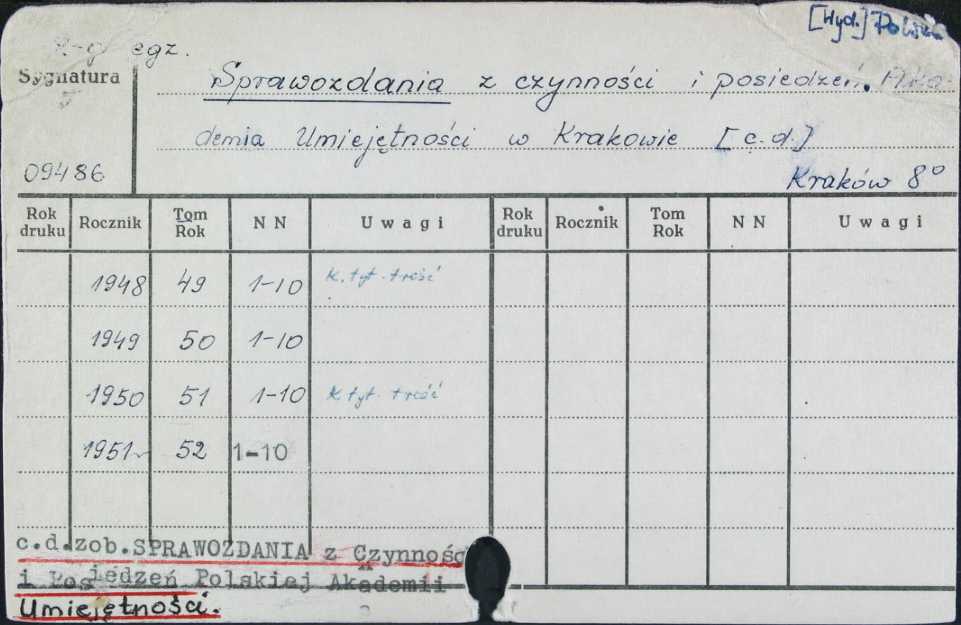 [Wyd.] Polska
2-g egz.
Sygnatura
Sprawozdania z czynności i posiedzeń. Aka-
demia Umiejętności w Krakowie [c.d.]
09486
Kraków 8°
Rok druku Rocznik Tom Rok N N Uwagi Rok druku Rocznik Tom Rok N N Uwagi
1948 49 1-10 K. tyt. treść
1949 50 1-10
1950 51 1-10 K tyt. treść
1951 52 1-10
c.d.zob.SPRAWOZDANIA z Czynnośc
i Posiedzeń Polskiej Akademii
Umiejętności.